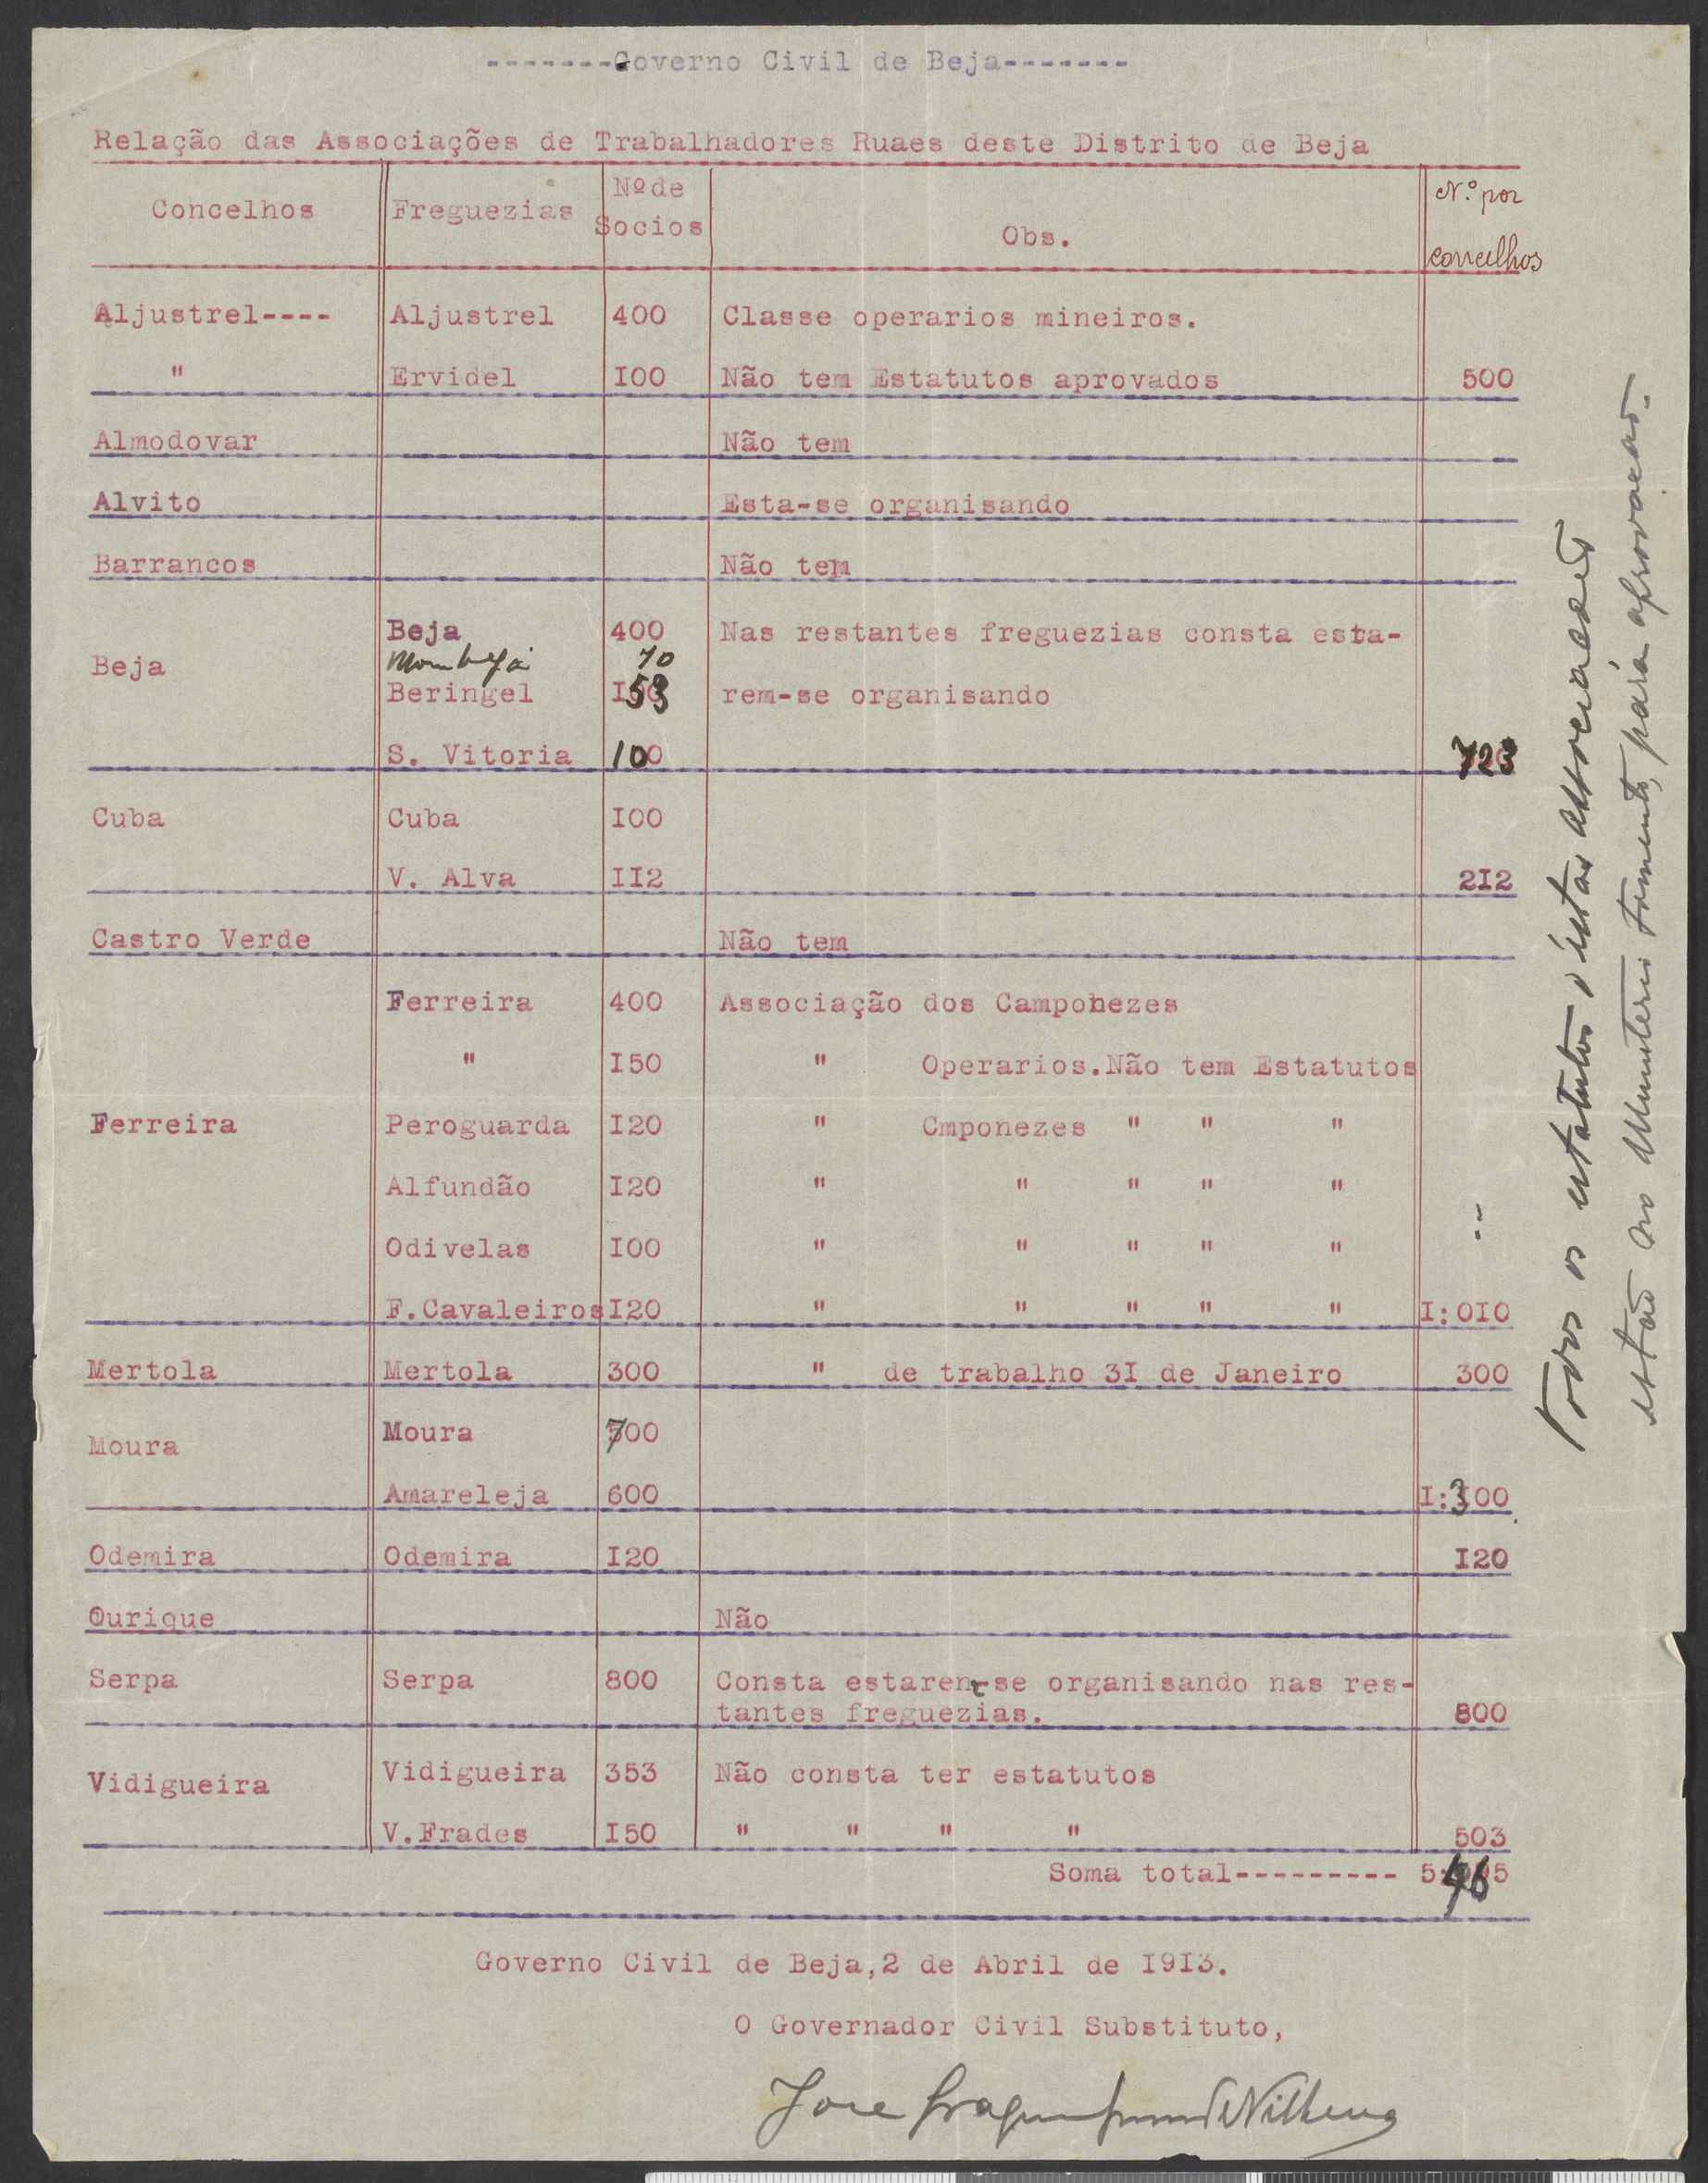 -------Governo Civil de Beja-------
Relação das Associações de Trabalhadores Ruaes deste Distrito de Beja
Concelhos Freguezias Nº de Socios Obs. N.º por concelhos
Aljustrel---- Aljustrel 400 Classe operarios mineiros.
" Ervidel I00 Não tem Estatutos aprovados 500
Almodovar Não tem
Alvito Esta-se organisando
Barrancos Não tem
Beja 400 Nas restantes freguezias consta esta-
Beja Mombeja 70
Beringel I53 rem-se organisando
S. Vitoria 100 723
Cuba Cuba I00
V. Alva II2 2I2
Castro Verde Não tem
Ferreira 400 Associação dos Camponezes
" I50 " Operarios.Não tem Estatutos
Ferreira Peroguarda I20 " Cmponezes " " "
Alfundão I20 " " " " "
Odivelas I00 " " " " "
F.Cavaleiros I20 " " " " " I:0I0
Mertola Mertola 300 " de trabalho 3I de Janeiro 300
Moura Moura 700
Amareleja 600 I:300
Odemira Odemira I20 I20
Ourique Não
Serpa Serpa 800 Consta estarem-se organisando nas res-
tantes freguezias. 800
Vidigueira Vidigueira 353 Não consta ter estatutos
V.Frades I50 " " " " 503
Soma total--------- 5:465
Governo Civil de Beja,2 de Abril de I9I3.
O Governador Civil Substituto,
Jose
Todos os estatutos d'estas associacoes
estão no Ministerio Fomento, para aprovacão.